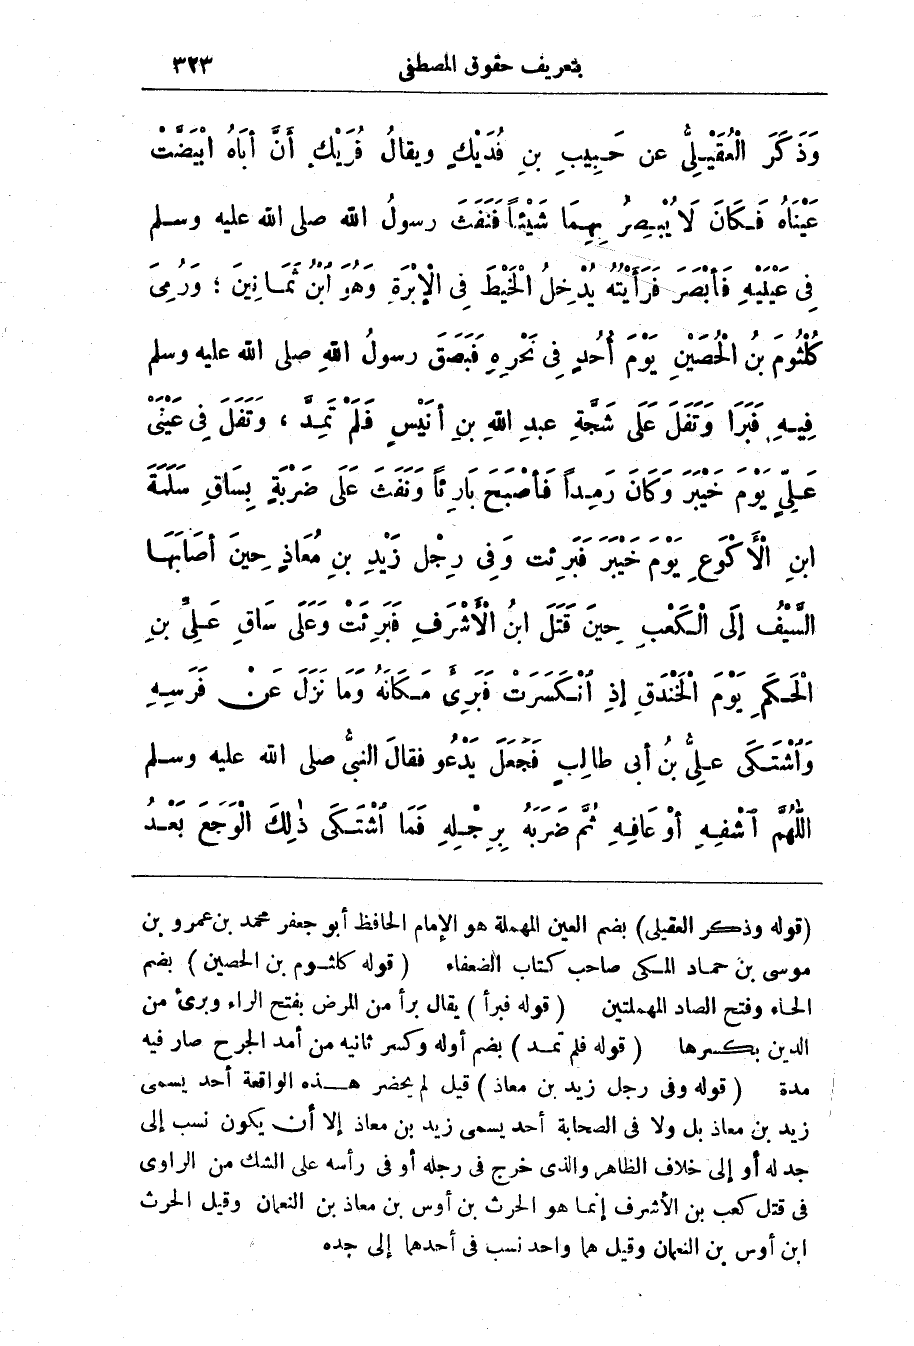 بتعريف حقوق المصطفى ٣٢٣
وَذَكَرَ الْعُقَيْلِىُّ عن حَبِيبِ بنِ فُدَيْكٍ ويقالُ فُرَيْكٍ أَنَّ أَبَاهُ ابْيَضَّتْ
عَيْنَاهُ فَكَانَ لَا يُبْصِرُ بِهِمَا شَيْئاً فَنَفَثَ رسولُ الله صلى الله عليه وسلم
فِى عَيْنَيْهِ فَأَبْصَرَ فَرَأَيْتُهُ يُدْخِلُ الْخَيْطَ فِى الْإِبْرَةِ وَهُوَ ابْنُ ثَمَانِينَ ؛ وَرُمِىَ
كُلْثُومُ بنُ الْحُصَيْنِ يَوْمَ أُحُدٍ فِى نَحْرِهِ فَبَصَقَ رسولُ اللهِ صلى الله عليه وسلم
فِيهِ فَبَرَا وَتَفَلَ عَلَى شَجَّةِ عبدِ اللهِ بنِ أُنَيْسٍ فَلَمْ تَمِدَّ ، وَتَفَلَ فِى عَيْنَىْ
عَلِىٍّ يَوْمَ خَيْبَرَ وَكَانَ رَمِداً فَأَصْبَحَ بَارِئاً وَنَفَثَ عَلَى ضَرْبَةٍ بِسَاقِ سَلَمَةَ
ابنِ الْأَكْوَعِ يَوْمَ خَيْبَرَ فَبَرِئَت وَفِى رِجْلِ زَيْدِ بنِ مُعَاذٍ حِينَ أَصَابَهَا
السَّيْفُ إِلَى الْكَعْبِ حِينَ قَتَلَ ابنُ الْأَشْرَفِ فَبَرِئَتْ وَعَلَى سَاقِ عَلِىِّ بنِ
الْحَكَمِ يَوْمَ الْخَنْدَقِ إِذِ انْكَسَرَتْ فَبَرِئَ مَكَانَهُ وَمَا نَزَلَ عَنْ فَرَسِهِ
وَاشْتَكَى عَلِىُّ بنُ أبى طالِبٍ فَجَعَلَ يَدْعُو فقالَ النبىُّ صلى الله عليه وسلم
اللَّهُمَّ اشْفِهِ أَوْ عَافِهِ ثُمَّ ضَرَبَهُ بِرِجْلِهِ فَمَا اشْتَكَى ذٰلِكَ الْوَجَعَ بَعْدُ
(قوله وذكر العقيلى) بضم العين المهملة هو الإمام الحافظ أبو جعفر محمد بن عمرو بن
موسى بن حماد المكى صاحب كتاب الضعفاء ( قوله كلثوم بن الحصين ) بضم
الحاء وفتح الصاد المهملتين ( قوله فبرأ ) يقال برأ من المرض بفتح الراء وبرئ من
الدين بكسرها ( قوله فلم تمد ) بضم أوله وكسر ثانيه من أمد الجرح صار فيه
مدة ( قوله وفى رجل زيد بن معاذ ) قيل لم يحضر هذه الواقعة أحد يسمى
زيد بن معاذ بل ولا فى الصحابة أحد يسمى زيد بن معاذ إلا أن يكون نسب إلى
جد له أو إلى خلاف الظاهر والذى خرج فى رجله أو فى رأسه على الشك من الراوى
فى قتل كعب بن الأشرف إنما هو الحرث بن أوس بن معاذ بن النعمان وقيل الحرث
ابن أوس بن النعمان وقيل هما واحد نسب فى أحدهما إلى جده